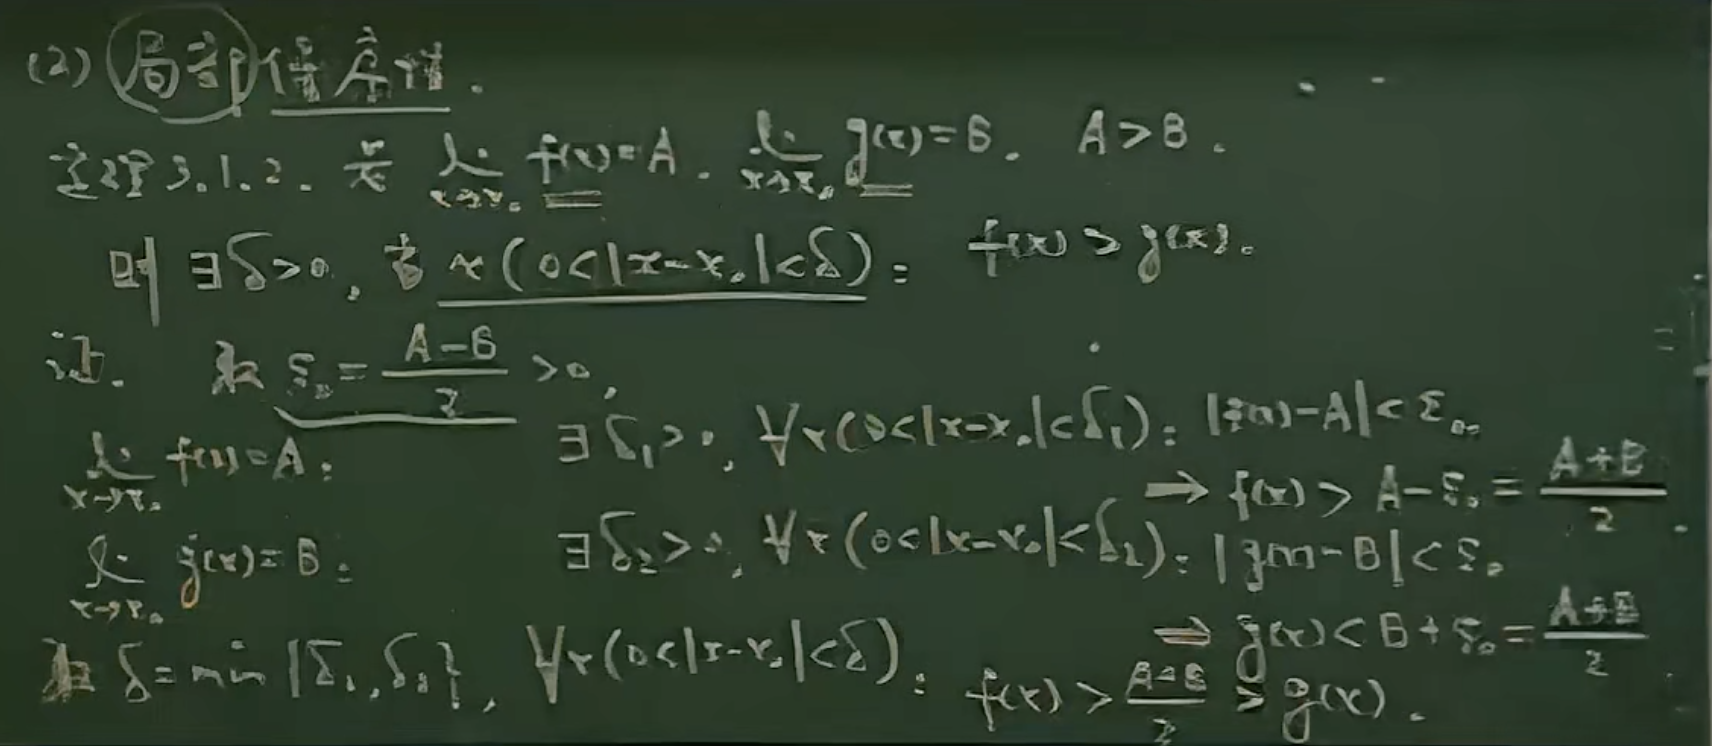 (2) 局部保序性.
定理3.1.2. 若 lim_{x→x₀} f(x)=A. lim_{x→x₀} g(x)=B. A>B.
则 ∃δ>0, 当 x(0<|x-x₀|<δ): f(x)>g(x).
证. 取 ε₀ = (A-B)/2 >0,
lim_{x→x₀} f(x)=A: ∃δ₁>0, ∀x(0<|x-x₀|<δ₁): |f(x)-A|<ε₀.
⇒ f(x) > A-ε₀ = (A+B)/2.
lim_{x→x₀} g(x)=B: ∃δ₂>0, ∀x(0<|x-x₀|<δ₂): |g(x)-B|<ε₀
⇒ g(x)<B+ε₀ = (A+B)/2
取 δ=min{δ₁,δ₂}, ∀x(0<|x-x₀|<δ): f(x) > (A+B)/2 > g(x).